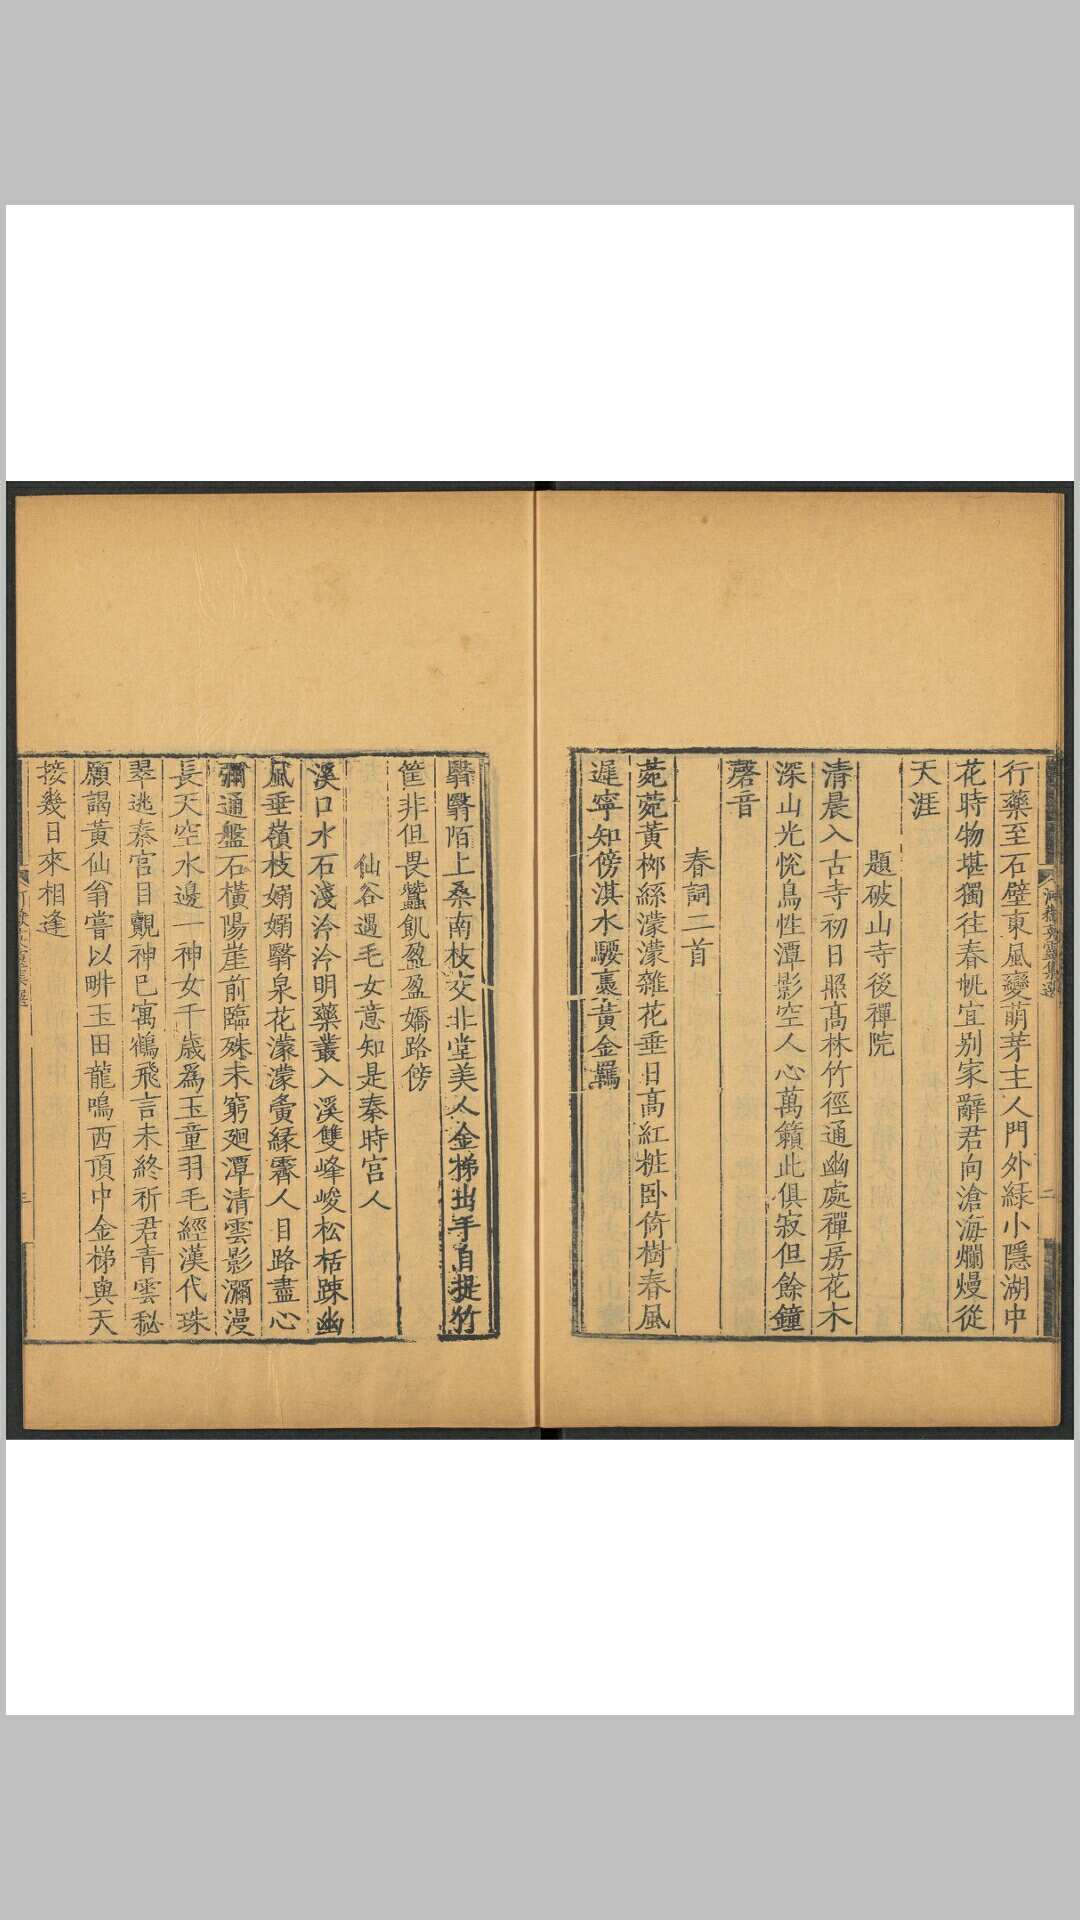 行藥至石壁東風變萌芽主人門外綠小隱湖中
花時物堪獨往春帆宜別家辭君向滄海爛熳從
天涯
題破山寺後禪院
清晨入古寺初日照高林竹徑通幽處禪房花木
深山光悅鳥性潭影空人心萬籟此俱寂但餘鐘
磬音
春詞二首
菀菀黃栁絲濛濛雜花垂日高紅粧臥倚樹春風
遲寧知傍淇水騕褭黃金羈
翳翳陌上桑南枝交北堂美人金梯出手自提竹
筐非但畏蠶飢盈盈嬌路傍
仙谷遇毛女意知是秦時宮人
溪口水石淺泠泠明藥叢入溪雙峰峻松栝踈幽
風垂嶺枝嫋嫋翳泉花濛濛夤緣霽人目路盡心
彌通盤石橫陽崖前臨殊未窮廻潭清雲影瀰漫
長天空水邊一神女千歲爲玉童羽毛經漢代珠
翠逃秦宮目覿神已寓鶴飛言未終祈君青雲秘
願謁黃仙翁嘗以畊玉田龍鳴西頂中金梯與天
接幾日來相逢
河嶽英靈集選
二
三